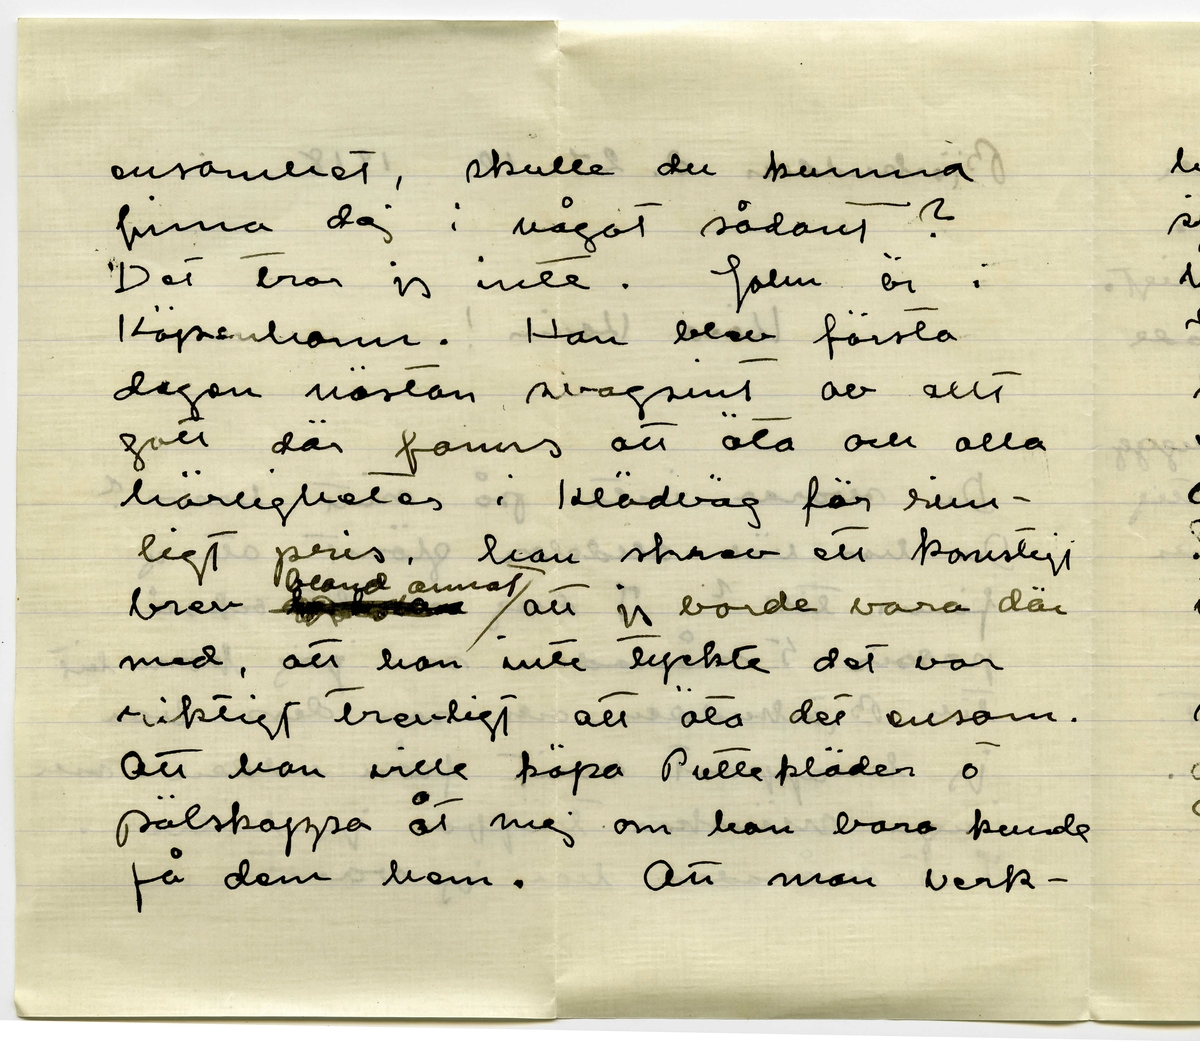 ensamhet, skulle du kunna
finna dej i något sådant?
Det tror jg inte. John är i
Köpenhamn. Han blev första
dagen nästan svagsint av allt
gott där fanns att äta och alla
härligheter i klädväg för rim-
ligt pris. han skrev ett konstigt
bland annat
brev att jg borde vara där
med, att han inte tyckte det var
riktigt trevligt att äta det ensam.
Att han ville köpa Puttekläder o
pälskappa åt mej om han bara kunde
få dem hem. Att man verk-